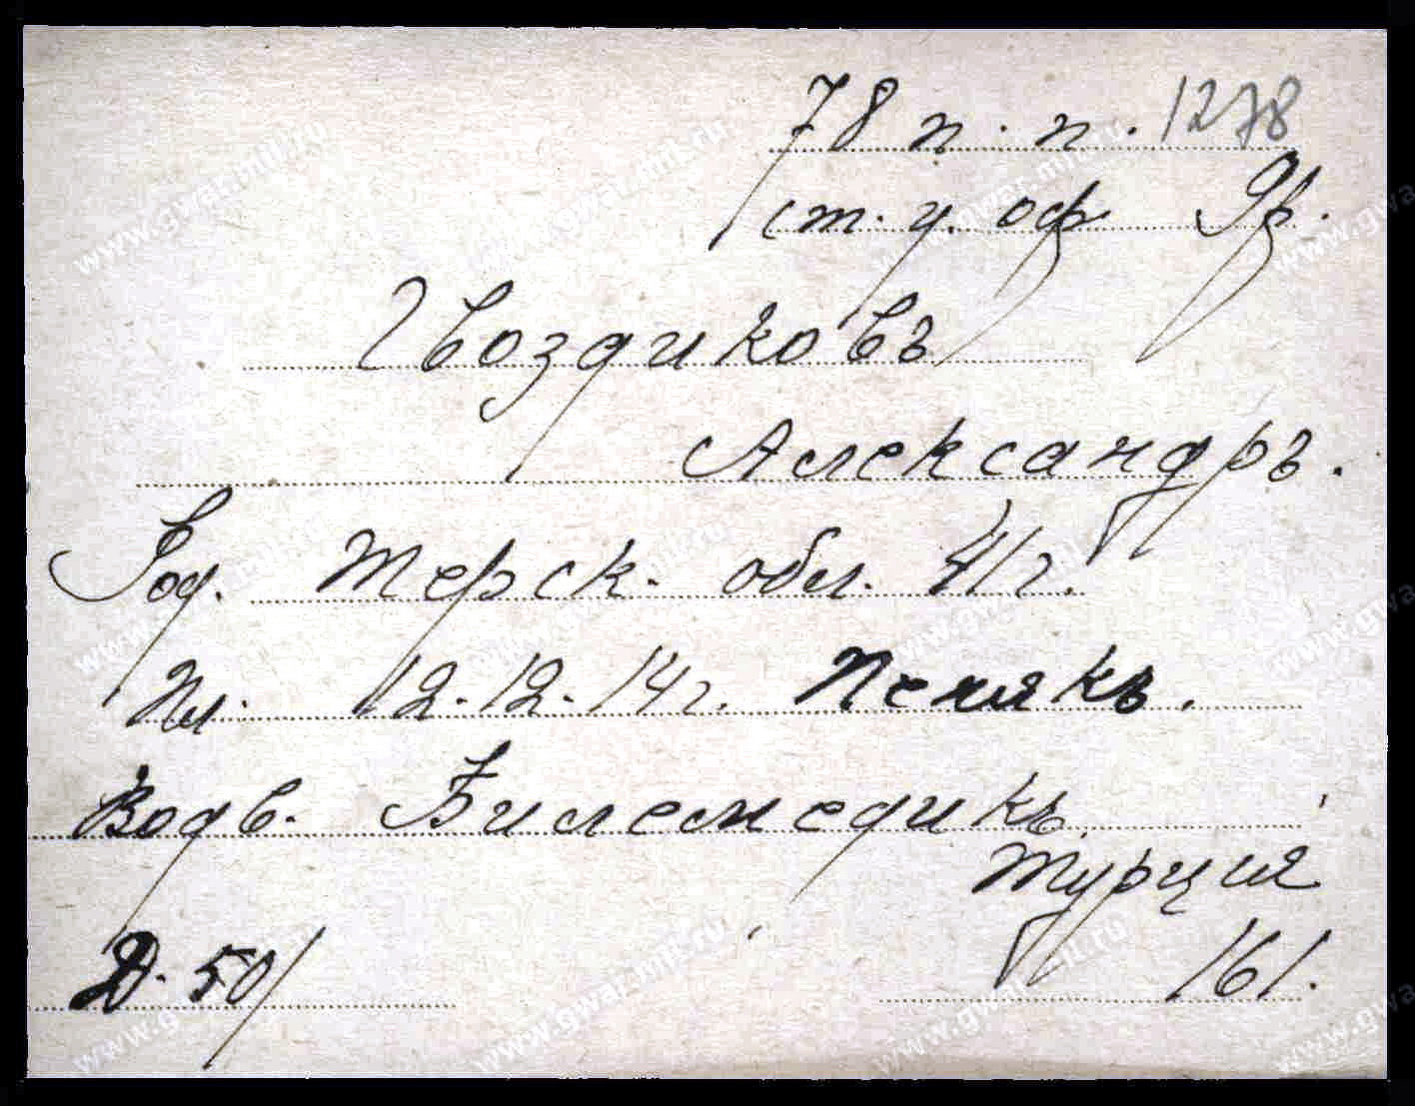 78 п. п. 1278
ст. у. оф. 9р.
Гвоздиковъ
Александръ.
Род. Терск. обл. 41г.
Пл. 12.12.14г. Пенякъ.
Водв. Билемедикъ.
Турция
Д. 501 161.
www.gwar.mil.ru